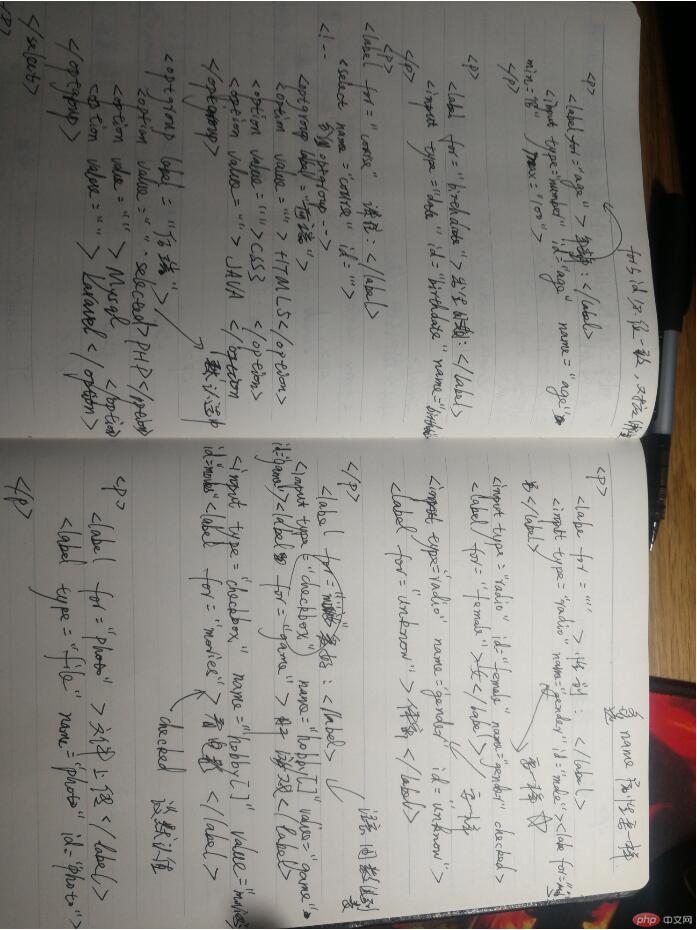 for与id必须一致，
<p>
<label for="age">年龄:</label>
<input type="number" id="age" name="age"
min="16" max="100">
</p>
<p>
<label for="birthdate">出生日期:</label>
<input type="date" id="birthdate" name="birthdate
</p>
<p>
<label for="course" 课程:</label>
<select name="course" id="">
<!-- optgroup -->
<optgroup label="前端">
<option value="">HTML5</option>
<option value="">CSS3 </option>
<option value="">JAVA </option
</optgroup>
<optgroup label="后端"> 默认选中
<option value="" selected>PHP</option>
<option value="">Mysql </option>
<option value="">Laravel</option>
</optgroup>
</select>
name
<p>
<labe for="" >性别: </label>
<input type="radio" name="gender" id="male"><labe for="
男</label>
<input type="radio" id="female" name="gender" checked>
<label for="female">女</label>
<input type="radio" name="gender" id="unknow">
<label for="unknow">保密</label>
</p>
<label for="">爱好:</label>
<input type="checkbox" name="hobby[]" value="game"
id="game"><label for="game">打游戏</label>
<input type="checkbox" name="hobby[]" value="movies
id="movies"<label for="movies">看电影</label>
checked 设默认值
<p>
<label for="photo">文件上传</label>
<label type="file" name="photo" id="photo">
</p>
php 中文网